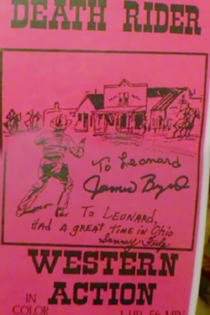 DEATH RIDER
To Leonard
James Byrd
To LEONARD,
Had A great time in Ohio
WESTERN
ACTION
IN
COLOR
1 HR. 56 MIN.